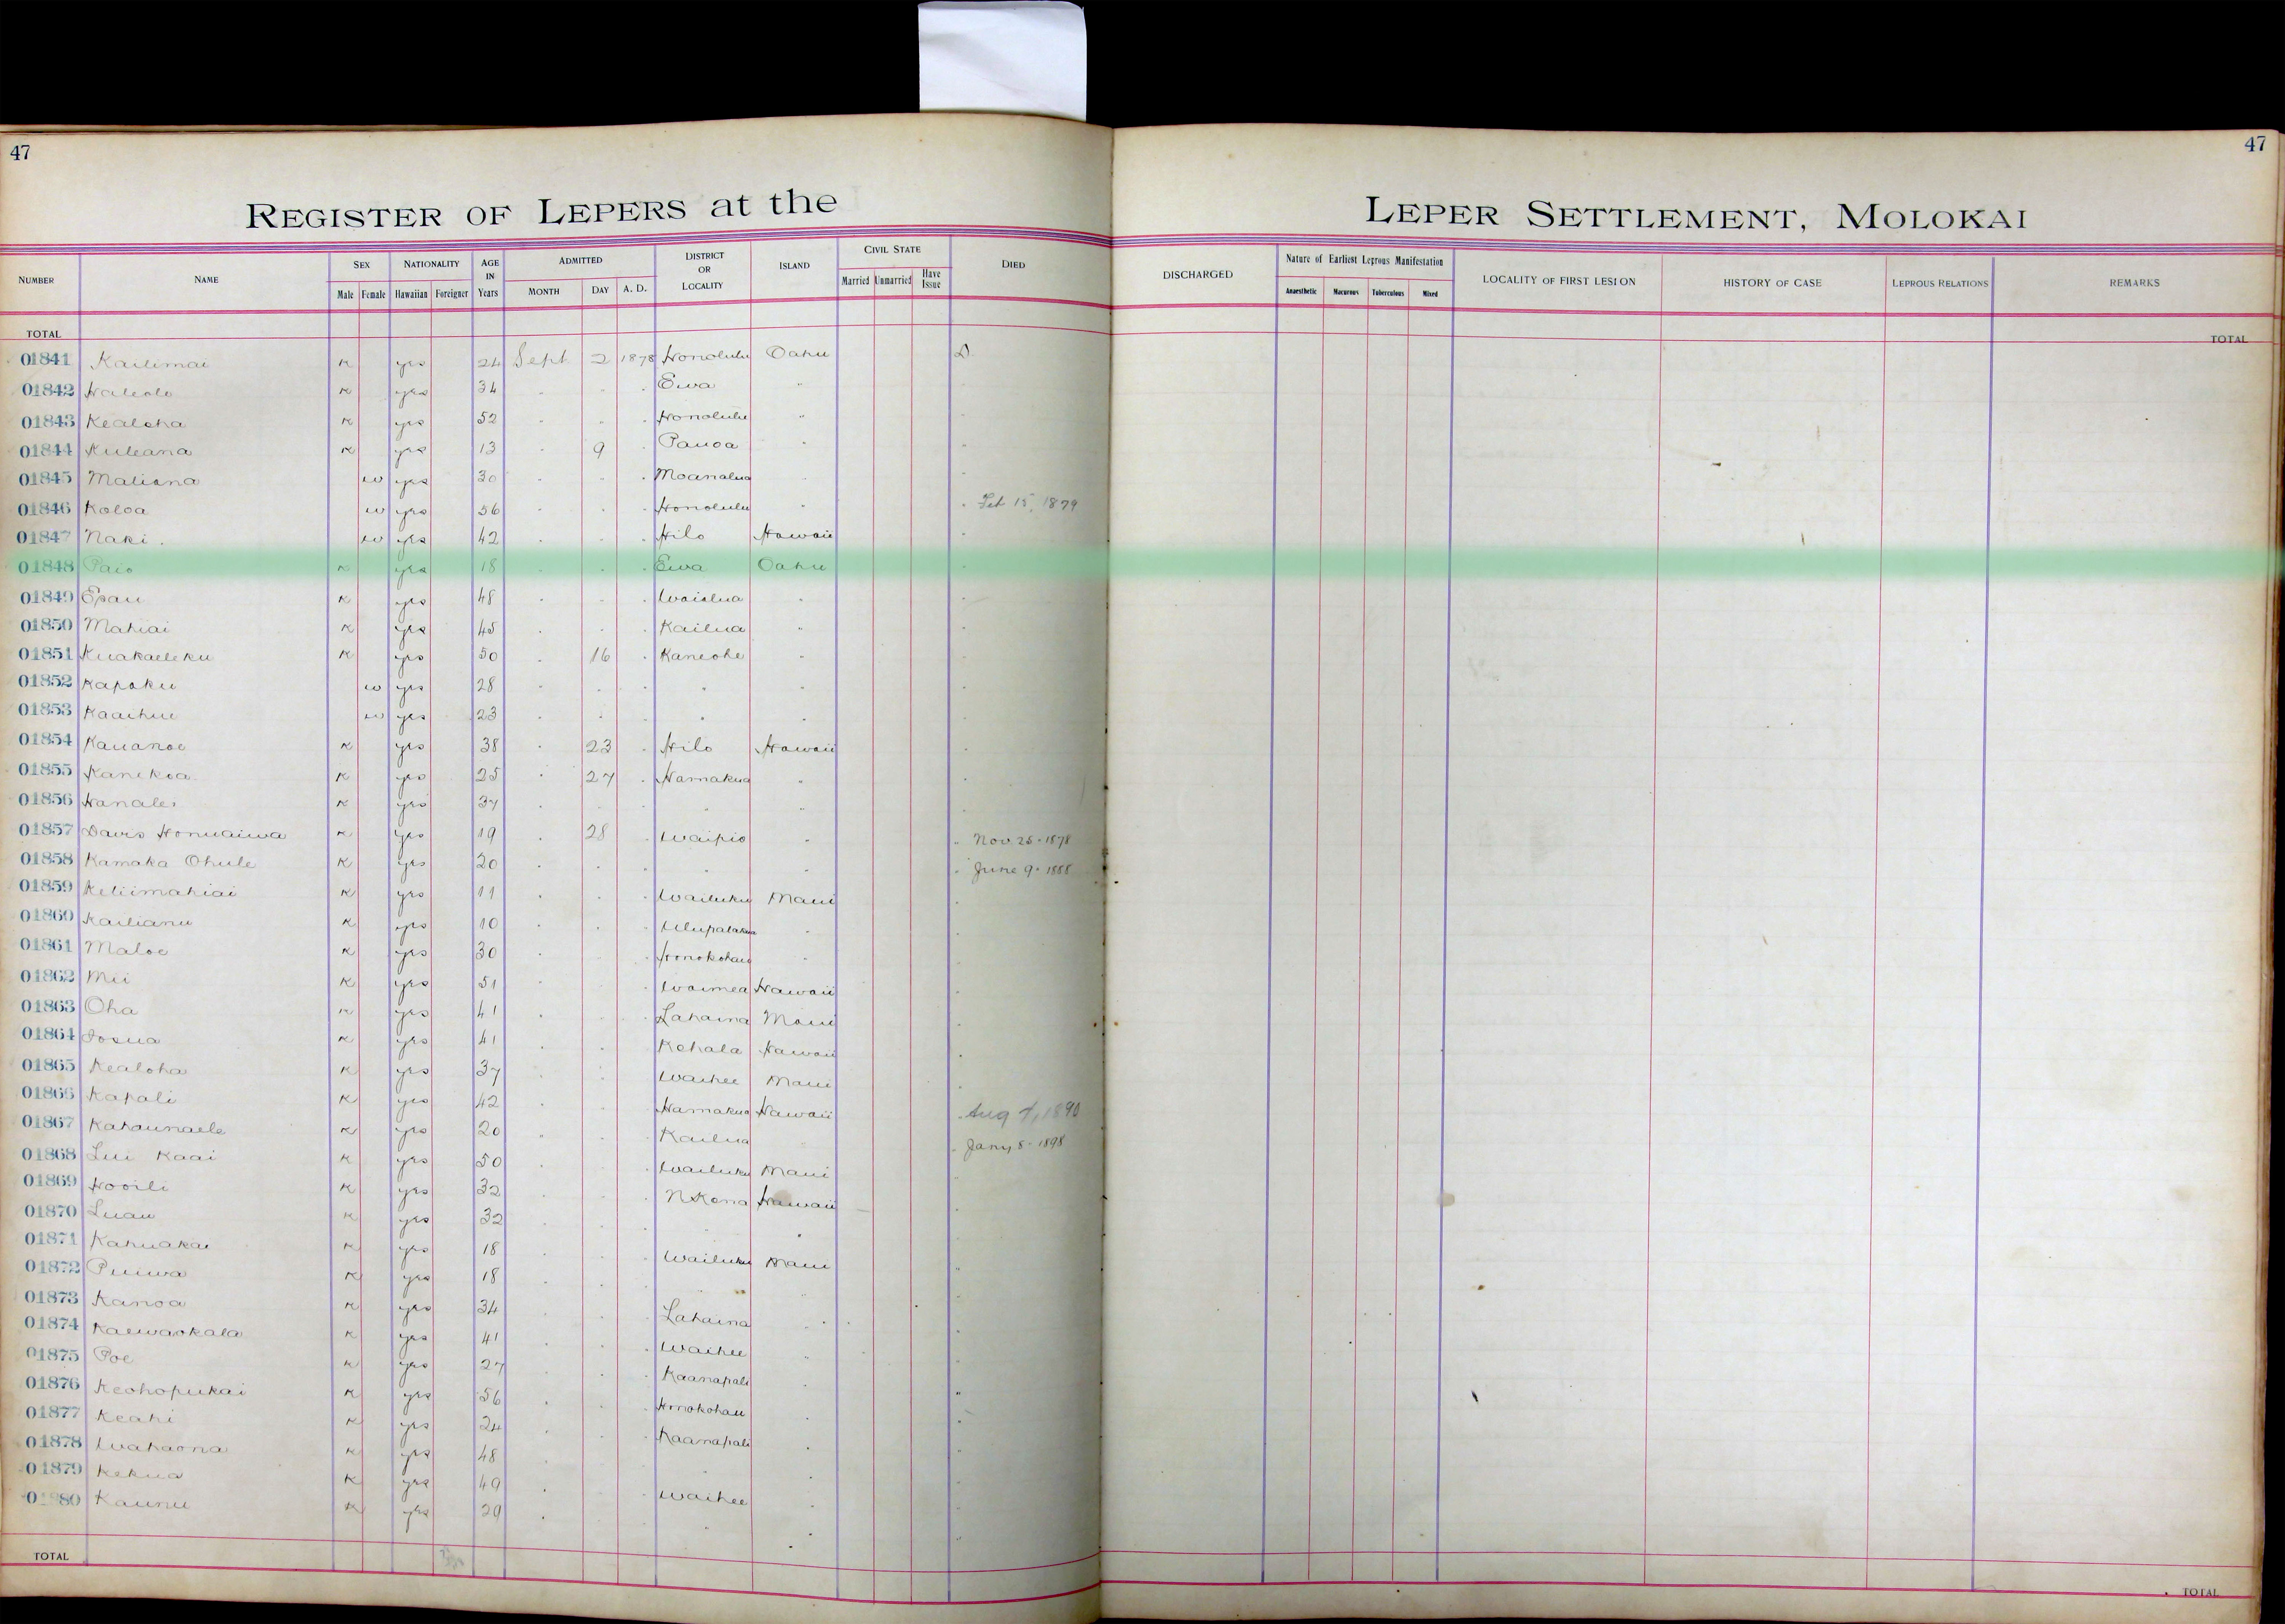 47
47
REGISTER OF LEPERS at the
LEPER SETTLEMENT, MOLOKAI
NUMBER NAME SEX Male Female NATIONALITY Hawaiian Foreigner AGE IN Years ADMITTED MONTH DAY A. D. DISTRICT OR LOCALITY ISLAND CIVIL STATE Married Unmarried Have Issue DIED DISCHARGED Nature of Earliest Leprous Manifestation Anaesthetic Macurous Tuberculous Mixed LOCALITY OF FIRST LESION HISTORY OF CASE LEPROUS RELATIONS REMARKS
TOTAL TOTAL
01841 Kailimai K yes 24 Sept 2 1878 Honolulu Oahu D
01842 Haleole K yes 34 " " " Ewa "
01843 Kealoha K yes 52 " " " Honolulu "
01844 Kuleana K yes 13 " 9 " Pauoa " "
01845 Maliana w yes 30 " " " Moanalua " "
01846 Koloa w yes 56 " " " Honolulu " " Feb 15, 1879
01847 Naki w yes 42 " " " Hilo Hawaii "
01848 Paio K yes 18 " " " Ewa Oahu "
01849 Epau K yes 48 " " " Waialua " "
01850 Mahiai K yes 45 " " " Kailua " "
01851 Kuakaeleku K yes 50 " 16 " Kaneohe " "
01852 Kapoku w yes 28 " " " " " "
01853 Kaaihue w yes 23 " " " " " "
01854 Kauanoe K yes 38 " 23 " Hilo Hawaii "
01855 Kanekoa K yes 25 " 27 " Hamakua " "
01856 Hanalei K yes 37 " " " " " "
01857 Davis Honuaiwa K yes 19 " 28 " Waipio " " Nov 25 - 1878
01858 Kamaka Ohule K yes 20 " " " " " " June 9 - 1888
01859 Keliimahiai K yes 11 " " " Wailuku Maui "
01860 Kailianu K yes 10 " " " Ulupalakua " "
01861 Maloe K yes 30 " " " Honokohau " "
01862 Mii K yes 51 " " " Waimea Hawaii "
01863 Oha K yes 41 " " " Lahaina Maui "
01864 Iosua K yes 41 " " " Kohala Hawaii "
01865 Kealoha K yes 37 " " " Waihee Maui "
01866 Kapali K yes 42 " " " Hamakua Hawaii " Aug 7, 1890
01867 Kahaunaele K yes 20 " " " Kailua " " Jany 8 - 1898
01868 Lui Kaai K yes 50 " " " Wailuku Maui "
01869 Hooili K yes 32 " " " N Kona Hawaii "
01870 Luau K yes 32 " " " " "
01871 Kahuakai K yes 18 " " " Wailuku Maui "
01872 Puuwa K yes 18 " " " " "
01873 Kanoa K yes 34 " " " Lahaina " "
01874 Kaewaokala K yes 41 " " " Waihee " "
01875 Poe K yes 27 " " " Kaanapali " "
01876 Keohopukai K yes 56 " " " Honokohau " "
01877 Keahi K yes 24 " " " Kaanapali " "
01878 Wahaona K yes 48 " " " " "
01879 Kekua K yes 49 " " " Waihee " "
01880 Kaunu K yes 29 " " " " "
TOTAL TOTAL